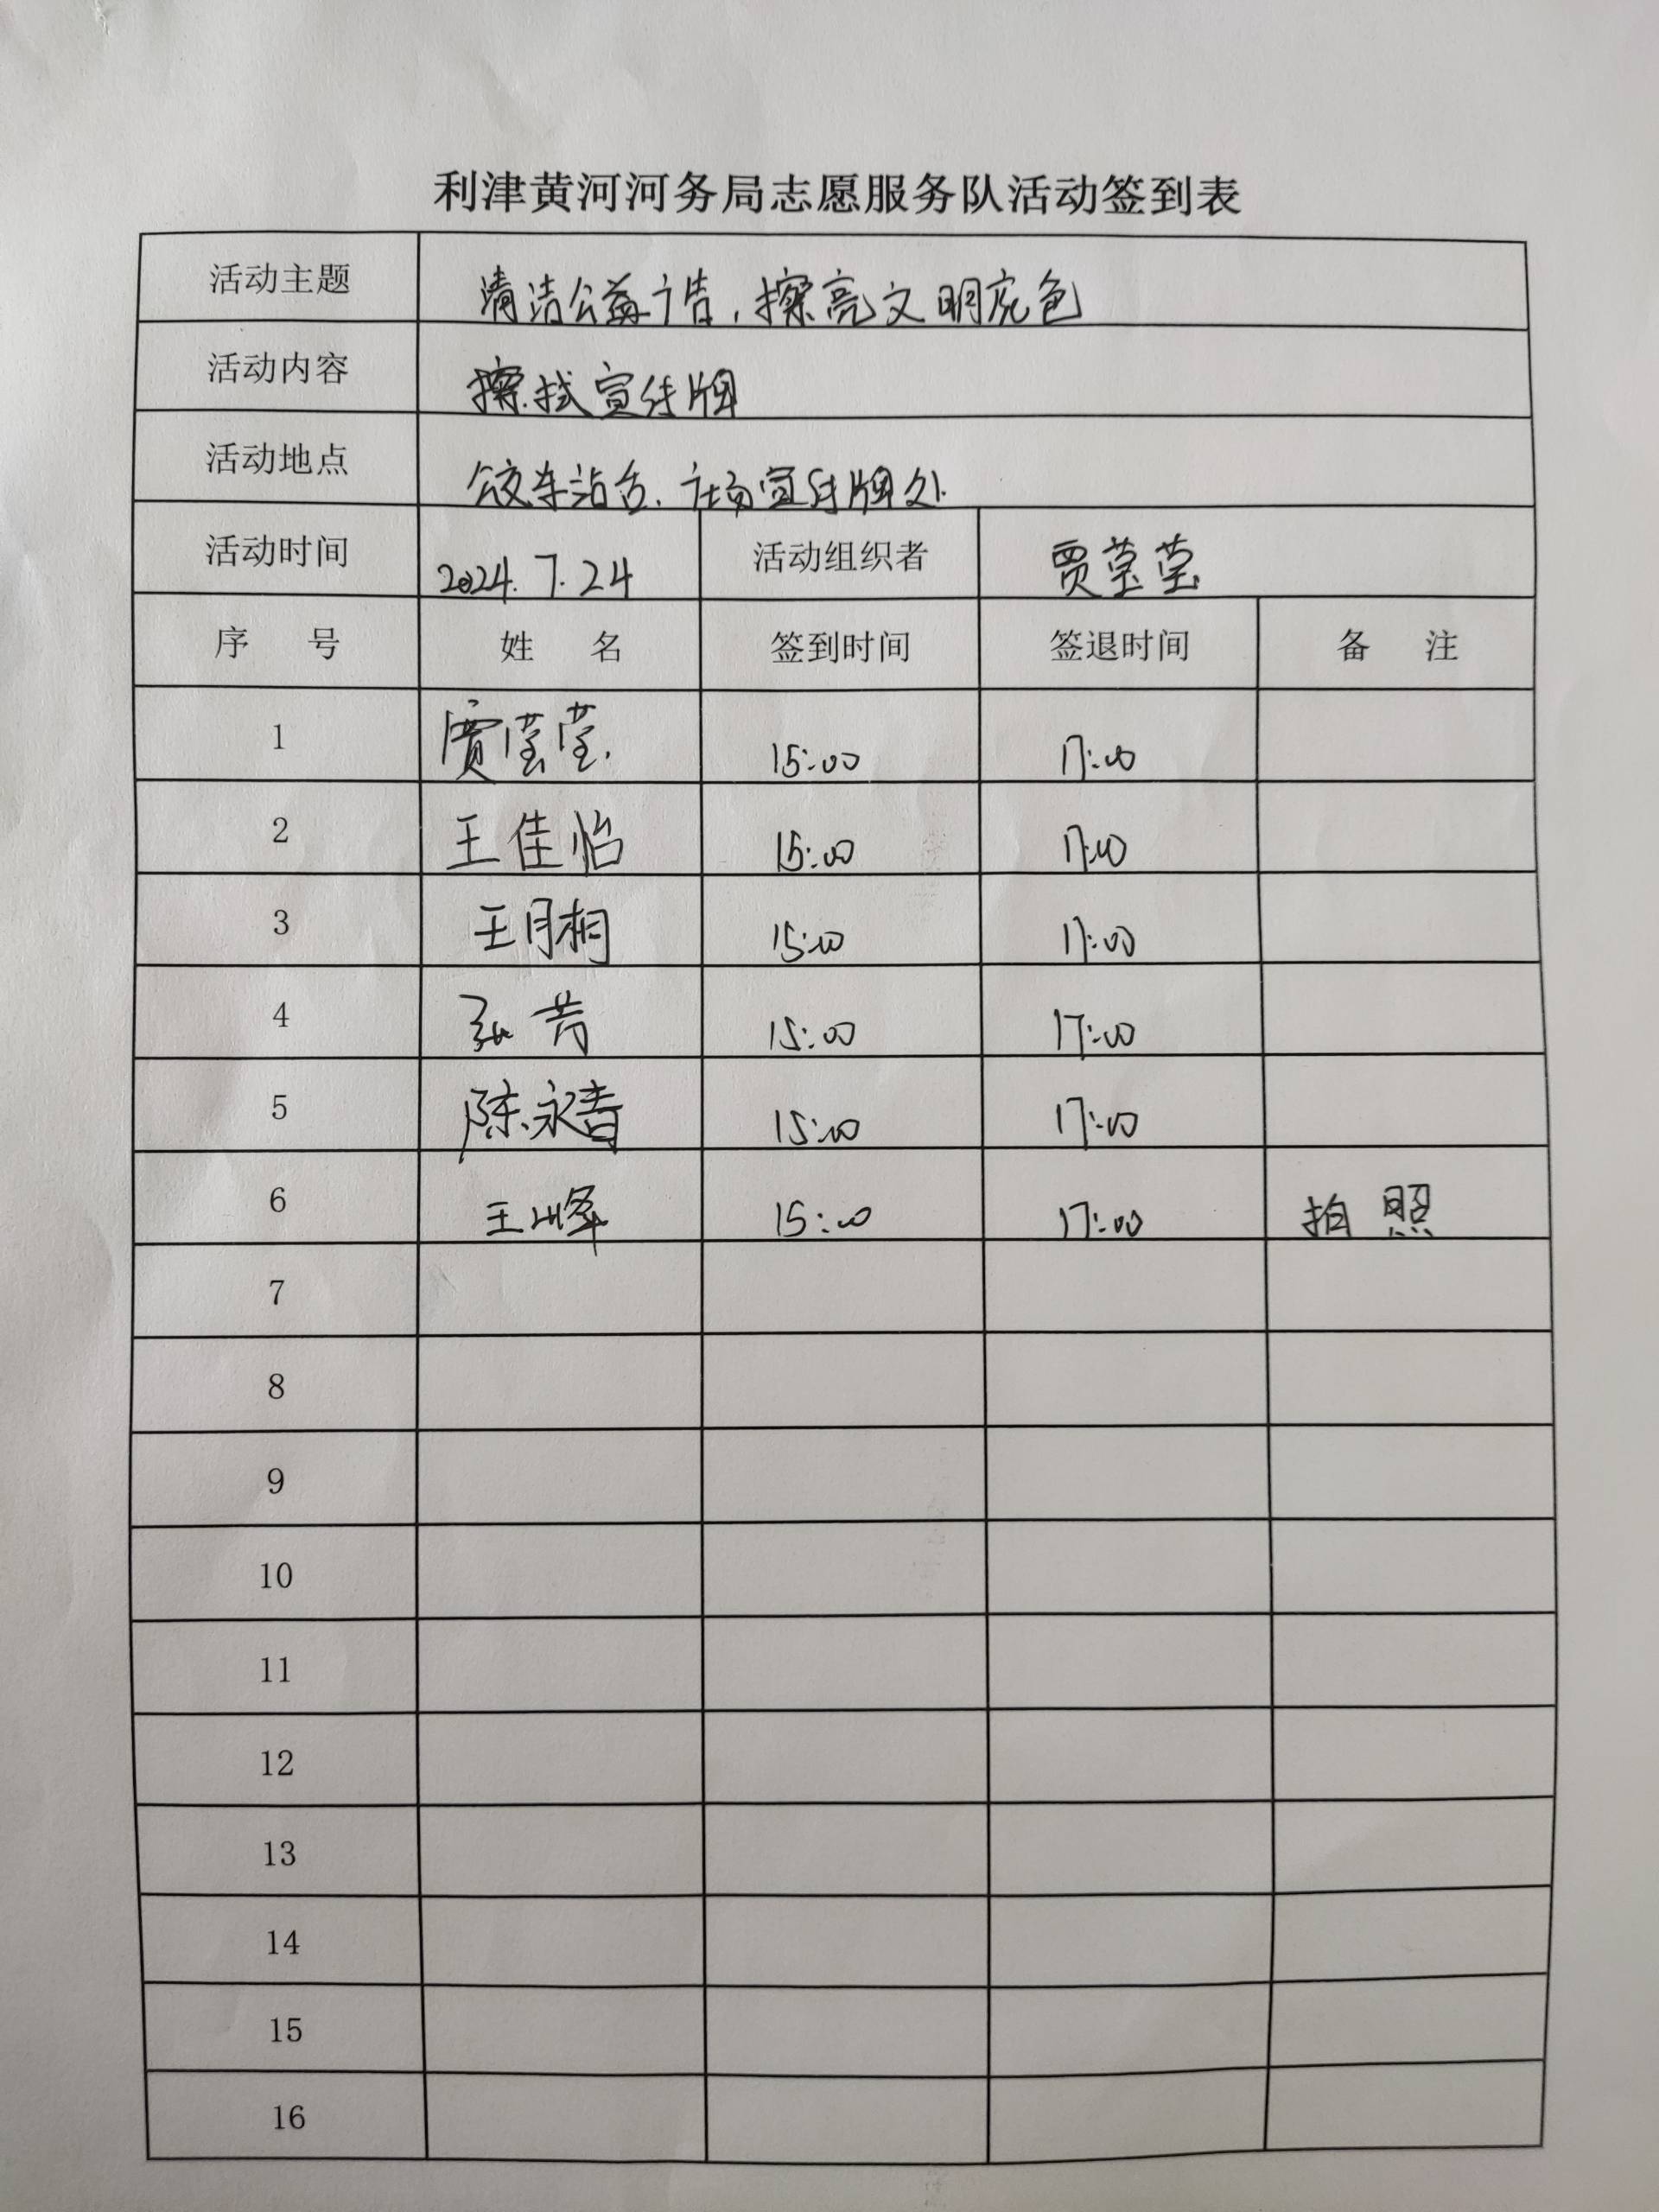 利津黄河河务局志愿服务队活动签到表
活动主题 清洁公益广告，擦亮文明底色
活动内容 擦拭宣传牌
活动地点 公交车站台、广场宣传牌处
活动时间 2024.7.24 活动组织者 贾莹莹
序号 姓名 签到时间 签退时间 备注
1 贾莹莹 15:00 17:00
2 王佳怡 15:00 17:00
3 王月桐 15:00 17:00
4 张芳 15:00 17:00
5 陈永春 15:00 17:00
6 王峰 15:00 17:00 拍照
7
8
9
10
11
12
13
14
15
16